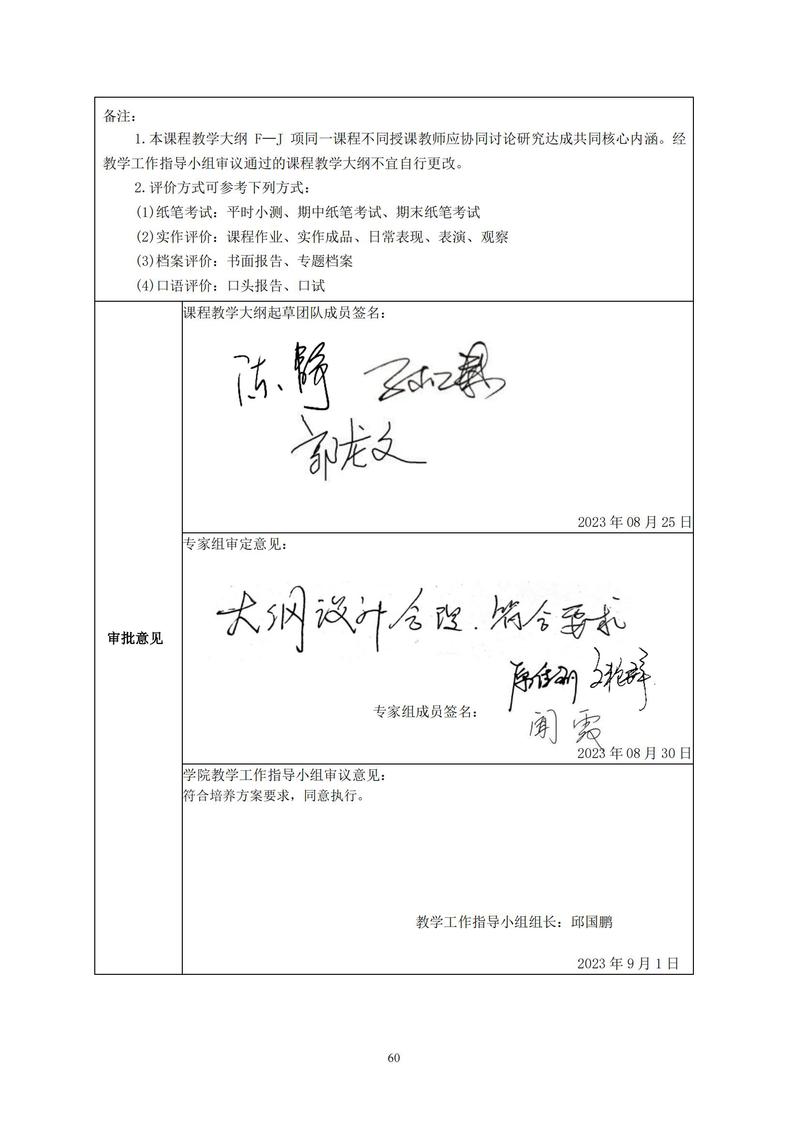 备注：
1.本课程教学大纲 F—J 项同一课程不同授课教师应协同讨论研究达成共同核心内涵。经
教学工作指导小组审议通过的课程教学大纲不宜自行更改。
2.评价方式可参考下列方式：
(1)纸笔考试：平时小测、期中纸笔考试、期末纸笔考试
(2)实作评价：课程作业、实作成品、日常表现、表演、观察
(3)档案评价：书面报告、专题档案
(4)口语评价：口头报告、口试
审批意见
课程教学大纲起草团队成员签名：
陈静
郭龙文
2023 年 08 月 25 日
专家组审定意见：
大纲设计合理.符合要求
专家组成员签名：
闻霞
2023 年 08 月 30 日
学院教学工作指导小组审议意见：
符合培养方案要求，同意执行。
教学工作指导小组组长：邱国鹏
2023 年 9 月 1 日
60